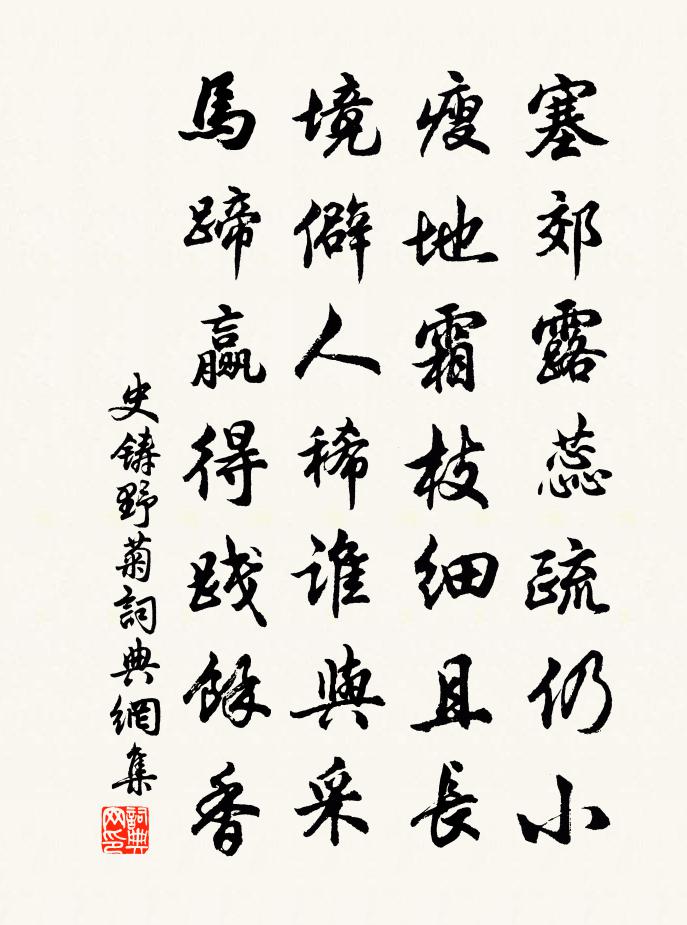 塞郊露蕊疏仍小
瘦地霜枝細且長
境僻人稀誰與采
馬蹄贏得踐餘香
史鑄野菊詞典網集
詞典網印